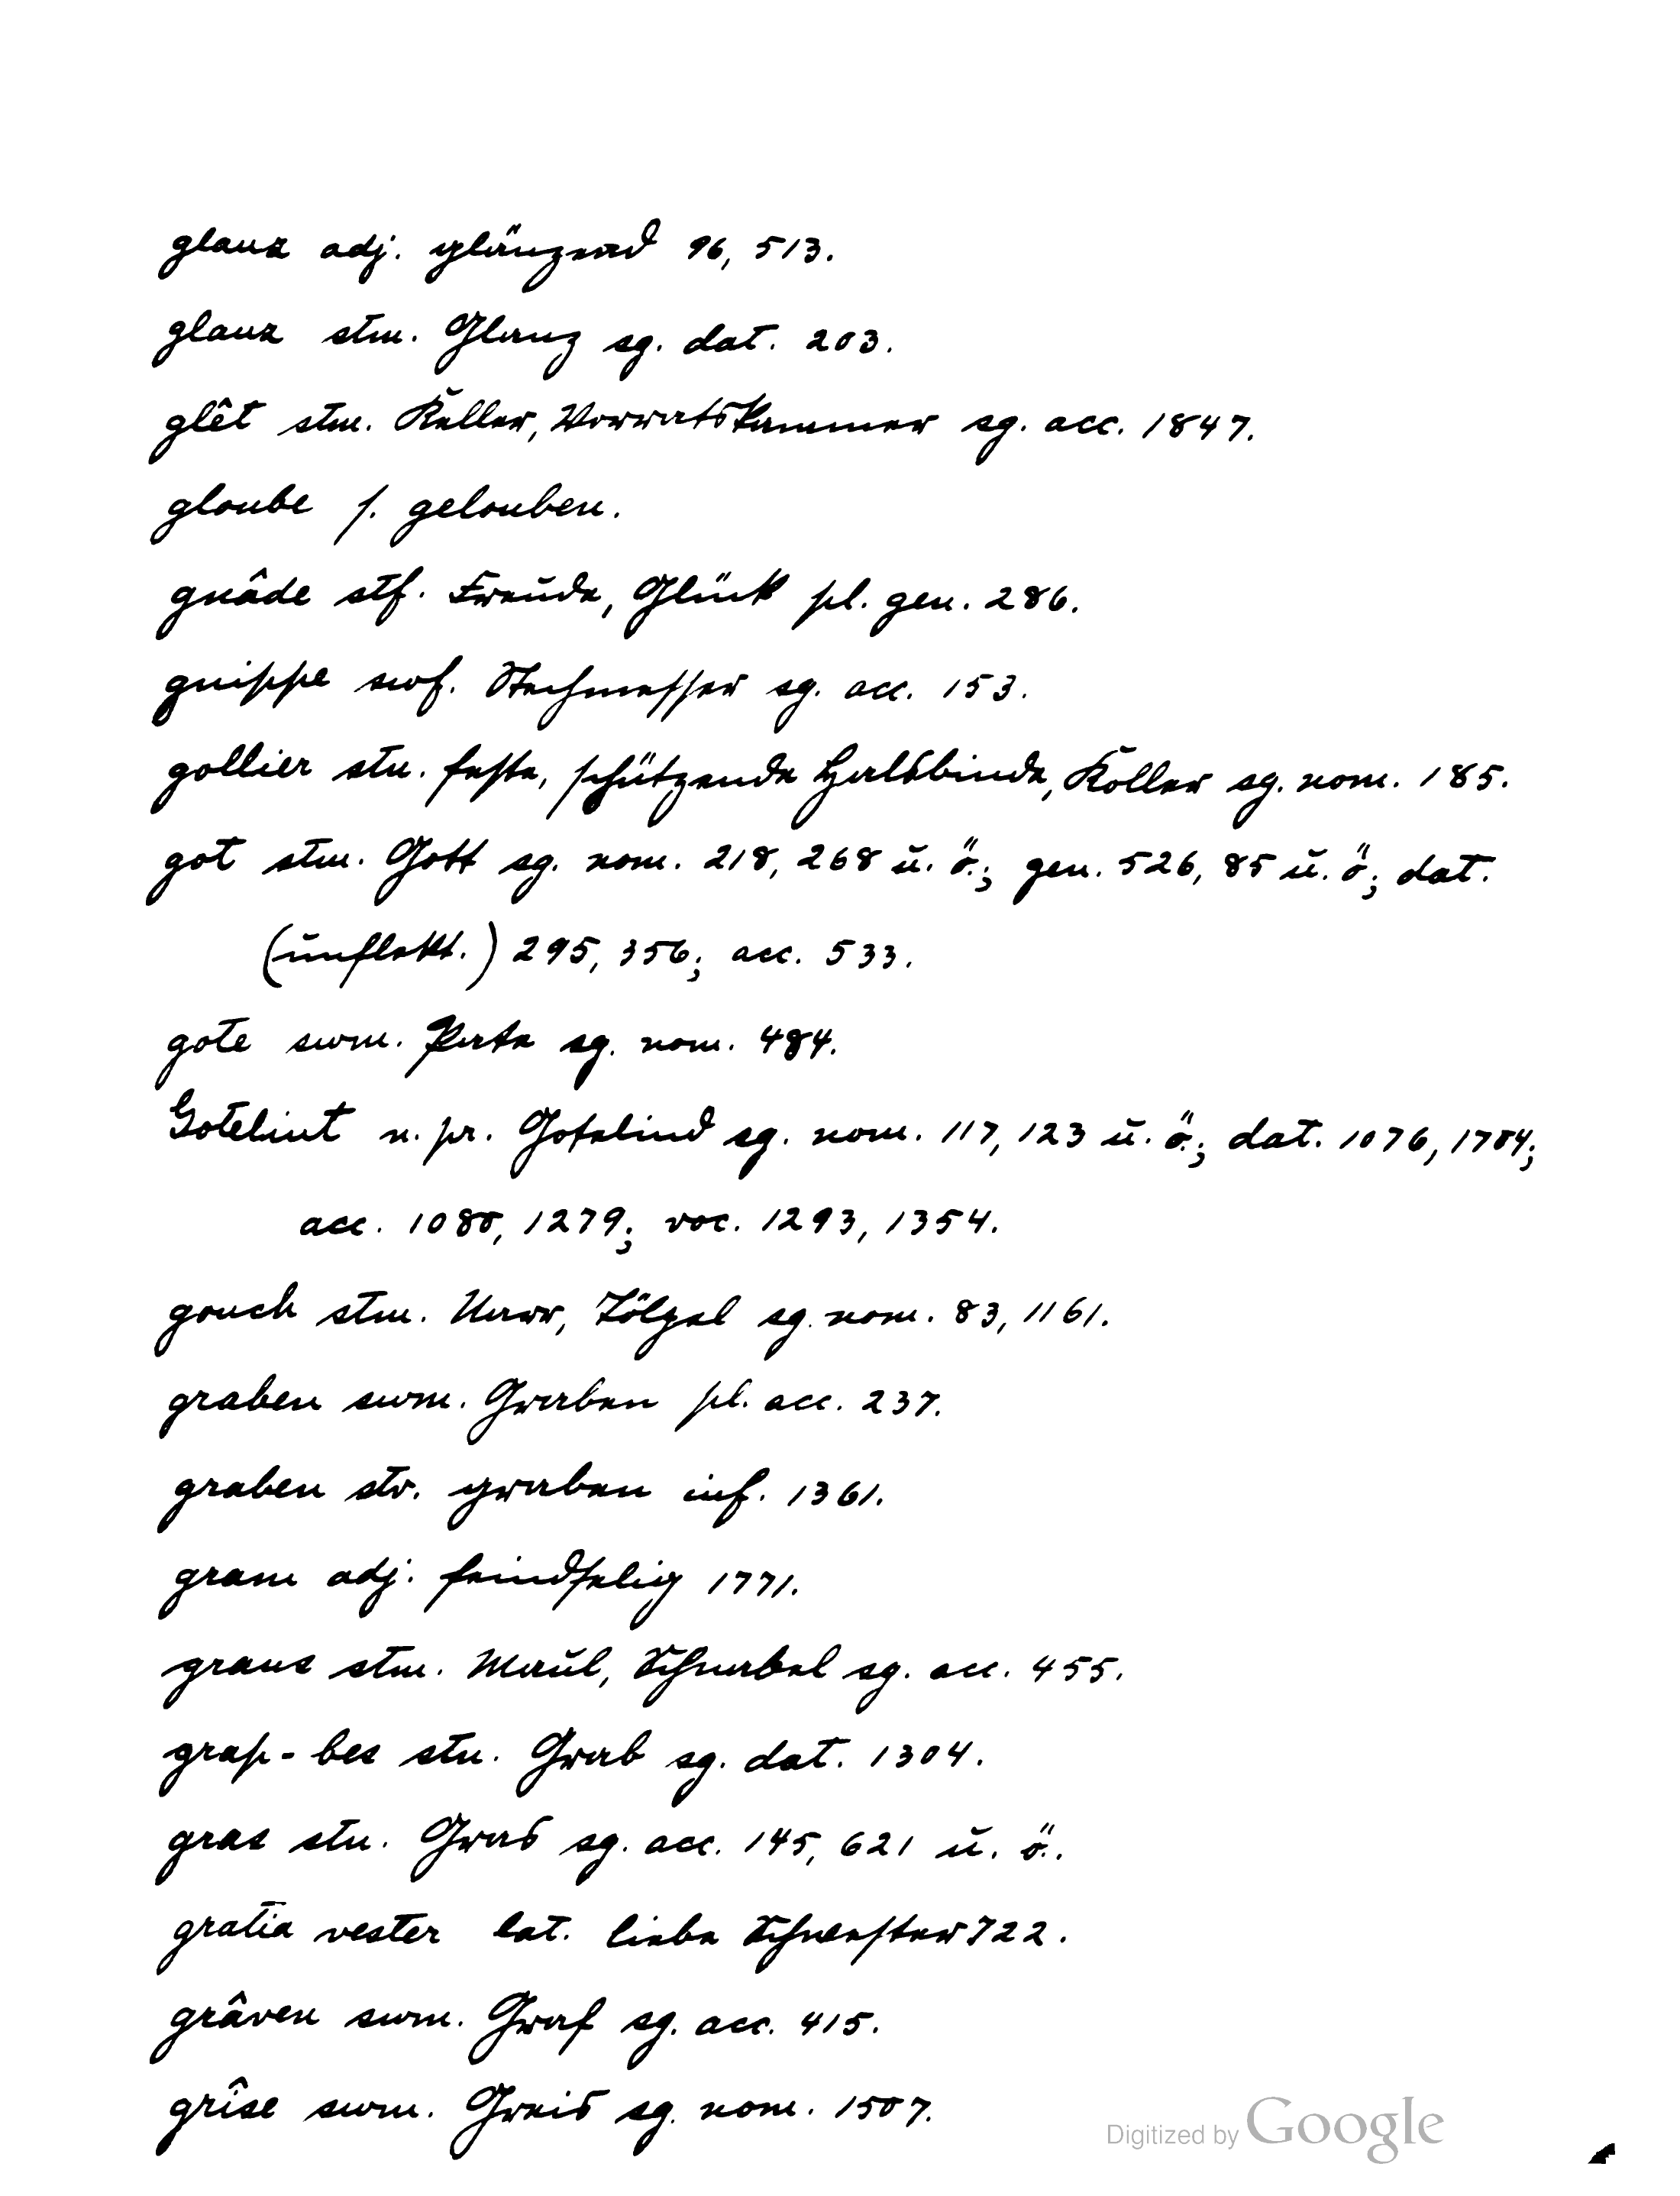 glanz adj. glänzend 96, 513.
glanz stm. Glanz sg. dat. 203.
glêt stm. Keller, Vorratskammer sg. acc. 1847.
gloube s. gelouben.
gnâde stf. Freude, Glück pl. gen. 286.
gnippe swf. Stechmesser sg. acc. 153.
gollier stn. feste, schützende Halsbinde, Koller sg. nom. 185.
got stm. Gott sg. nom. 218, 268 u. ö.; gen. 526, 85 u. ö.; dat.
(unflekt.) 295, 356; acc. 533.
gote swm. Pate sg. nom. 484.
Gotelint n. pr. Gotelind sg. nom. 117, 123 u. ö.; dat. 1076, 1784;
acc. 1080, 1279; voc. 1293, 1354.
gouch stm. Narr, Tölpel sg. nom. 83, 1161.
graben swm. Graben pl. acc. 237.
graben stv. graben inf. 1361.
gram adj. feindselig 1771.
grans stm. Maul, Schnabel sg. acc. 455.
grap-bes stn. Grab sg. dat. 1304.
gras stn. Gras sg. acc. 145, 621 u. ö..
gratia vester lat. liebe Schwester 722.
grâven swm. Graf sg. acc. 415.
grîse swm. Greis sg. nom. 1507.
Digitized by Google